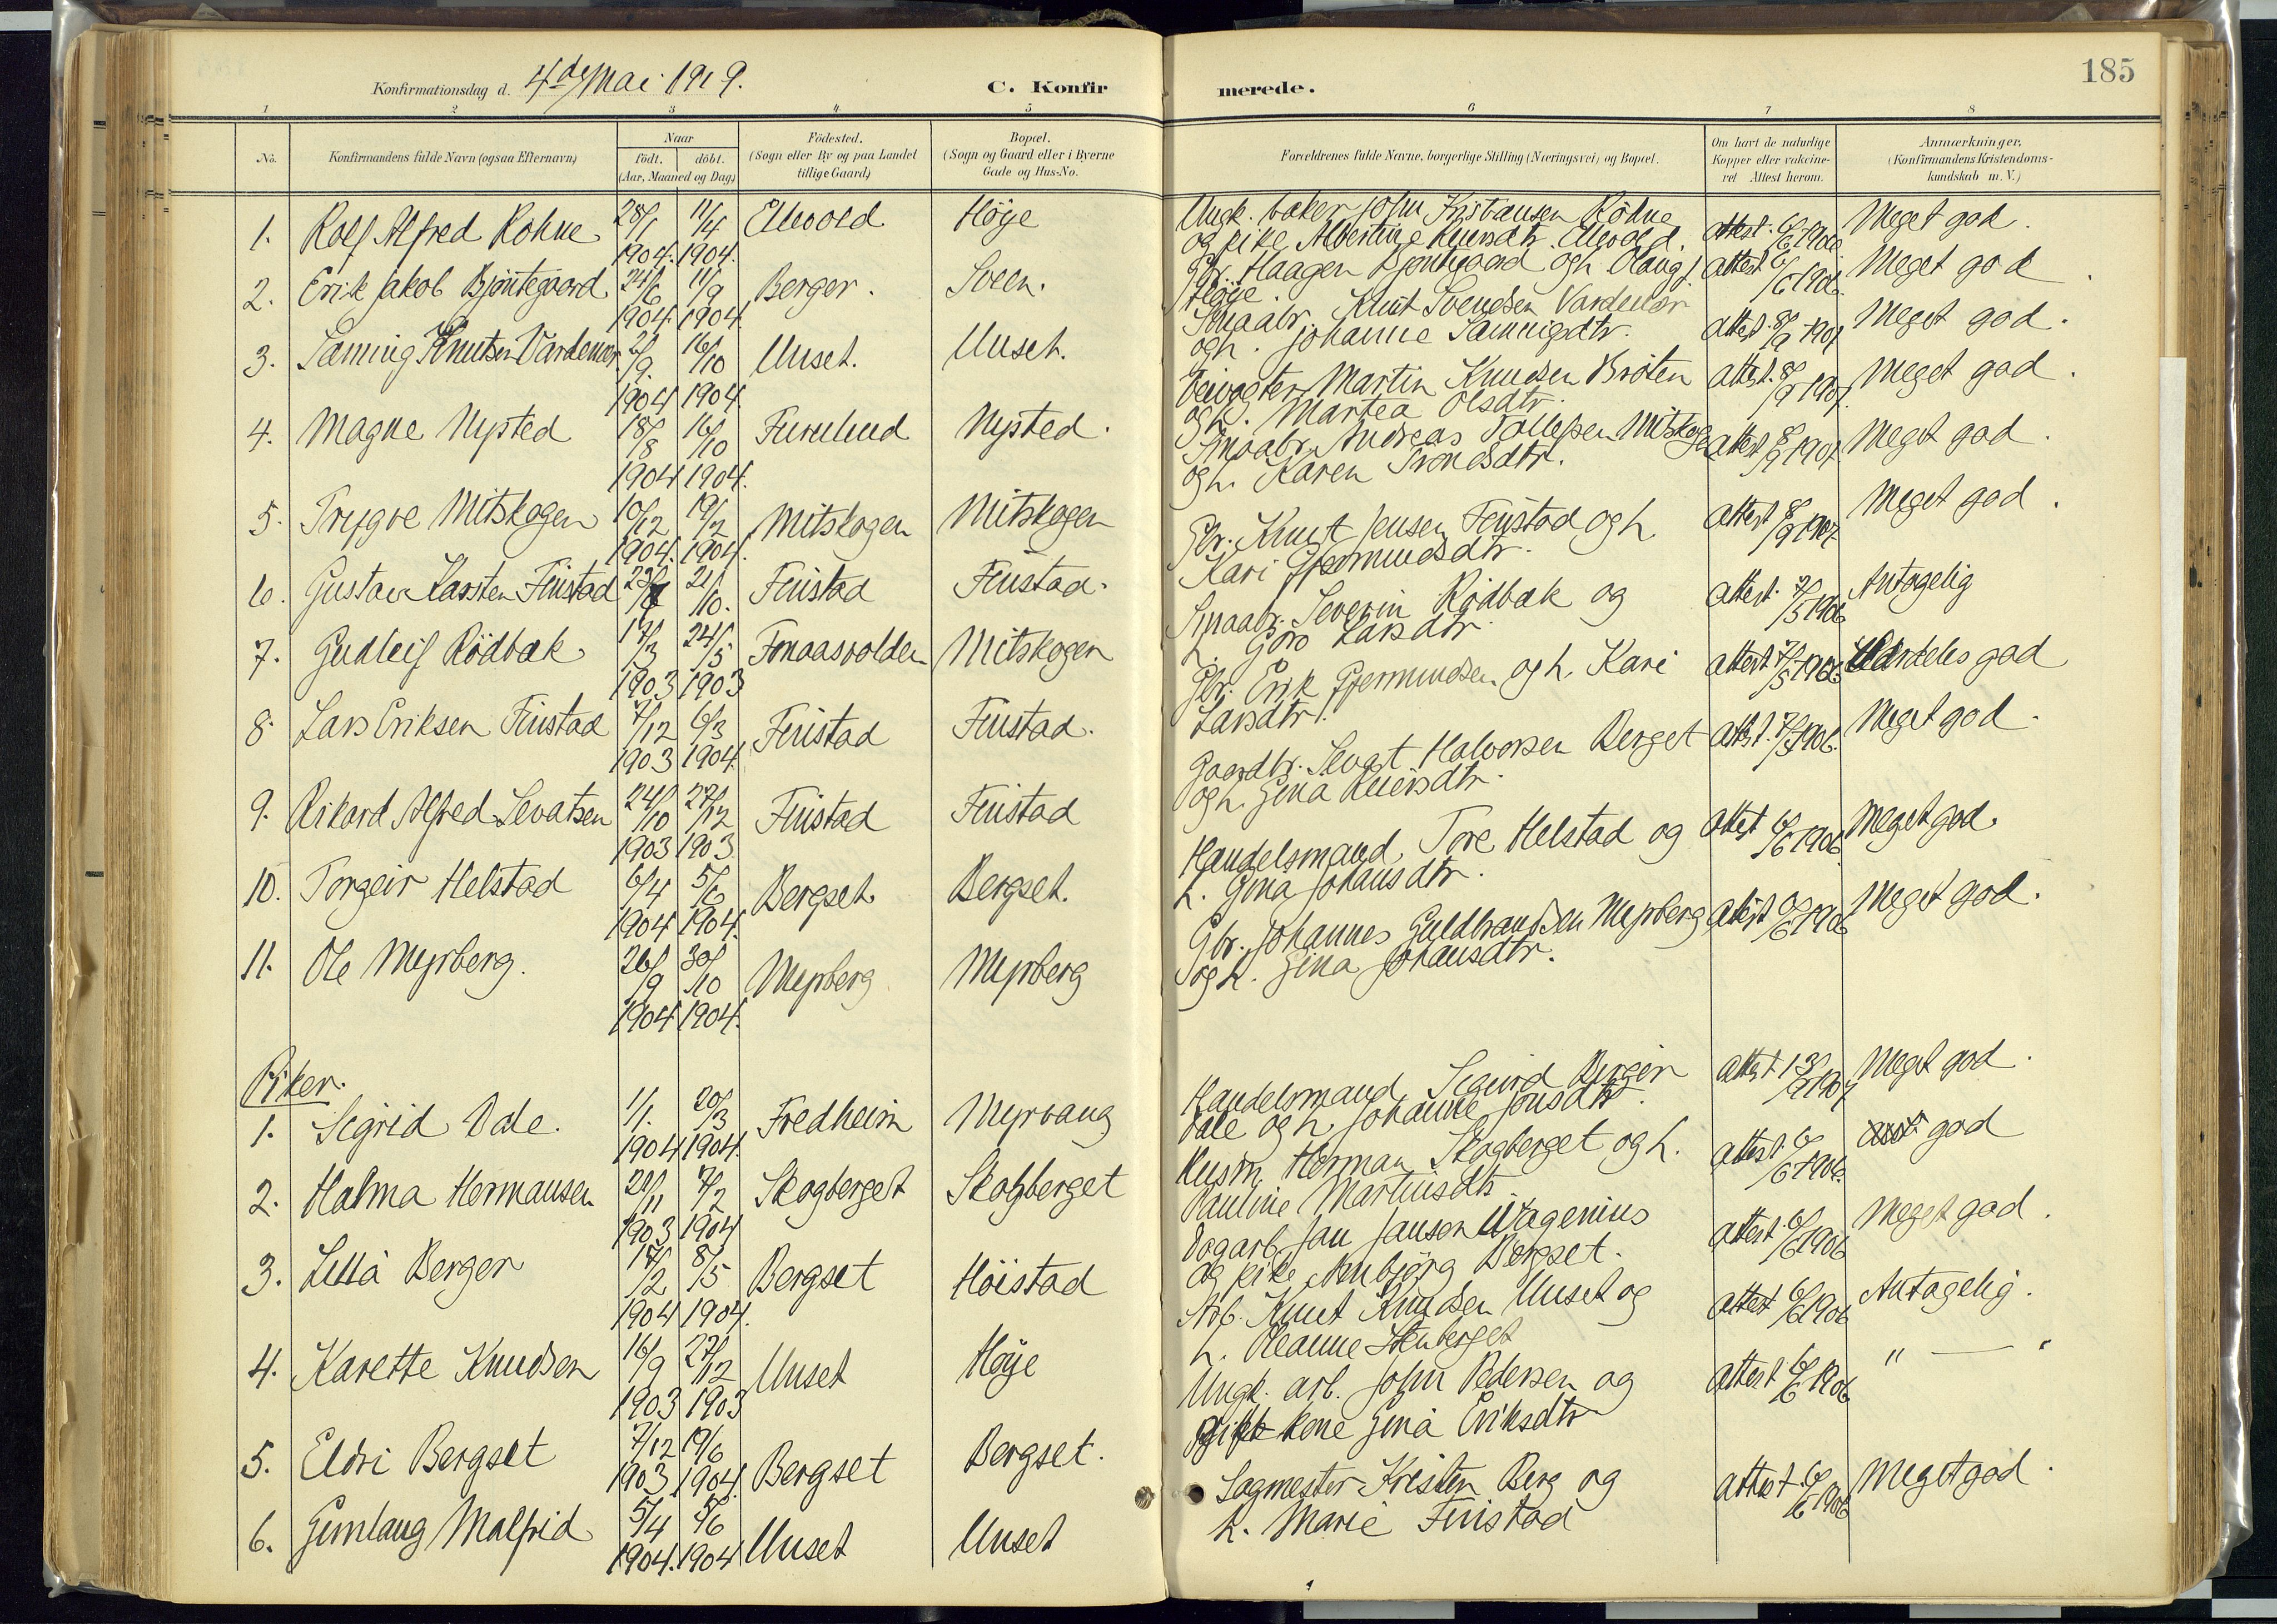 185
Konfirmationsdag d. 4de Mai 1919.
C. Konfirmerede.
1 2 3 4 5 6 7 8
No.
Konfirmandens fulde Navn (ogsaa Efternavn)
Naar
födt. döbt.
(Aar, Maaned og Dag)
Födested.
(Sogn eller By og paa Landet
tillige Gaard)
Bopæl.
(Sogn og Gaard eller i Byerne
Gade og Hus-No.
Forældrenes fulde Navne, borgerlige Stilling (Næringsvei) og Bopæl.
Om havt de naturlige
Kopper eller vakcine-
ret Attest herom.
Anmærkninger.
(Konfirmandens Kristendoms-
kundskab m. V.)
1. Rolf Alfred Rohne 28/1 1904. 11/4 1904. Ellevold Höye
Ungk. baker John Kristiansen Röhne
og pike Albertine Knudsdtr. Ellevold. Attest. 6/6 1906 Meget god.
2. Erik Jakob Bjöntegaard 24/6 1904. 11/9 1904. Berger. Sveen.
Gbr. Haagen Bjöntegaard og h. Olaug J.
Höye. Attest 6/6 1906. Meget god.
3. Sæming Knutsen Vardemoen 2/9. 1904 16/10 1904. Unset. Unset.
Smaabr. Knut Svendsen Vardemoen
og h. Johanne Sæmingsdtr. Attest. 8/9 1907 Meget god.
4. Magne Nysted 18/8 1904 16/10 1904. Furulund Nysted.
Veivogter Martin Knudsen Bröten
og h. Martea Olsdtr. Attest. 8/9 1907. Meget god.
5. Trygve Mitskogen 10/12 1904. 19/2 1904. Mitskogen Mitskogen
Smaabr. Andreas Tollefsen Mitskogen
og h. Karen Trondsdtr. Attest 8/9 1907. Meget god.
6. Gustav Karsten Finstad 23/ 21/10. Finstad Finstad.
Gbr. Knut Jensen Finstad og h.
Kari Gjermundsdtr. Attest 8/9 1907 Meget god.
7. Gudleif Rödbæk 17/3 1903 24/5 1903 Fonaasvolden Mitskogen
Smaabr. Severin Rödbæk og
h. Goro Larsdtr. Attest. 7/5 1906 Antagelig
8. Lars Eriksen Finstad 7/12 1903 6/3 1904. Finstad Finstad.
Gbr. Erik Gjermundsen og h. Kari
Larsdtr. Attest 7/5 1906. Særdeles god
9. Rikard Alfred Sevatsen 24/10 1903 27/12 1903. Finstad Finstad
Gaardbr. Sevat Halvorsen Berget
og h. Gina Reiersdtr. Attest. 7/5 1906. Meget god.
10. Torgeir Helstad 6/4 1904 5/6 1904. Bergset Bergset.
Handelsmand Tore Helstad og
h. Gina Johansdtr. Attest 6/6 1906. Meget god.
11. Ole Myrberg. 26/9 1904 30/10 1904. Myrberg Myrberg
Gbr. Johannes Guldbrandsen Myrberg
og h. Gina Johansdtr. Attest 6/6 1906 Meget god.
Piker.
1. Sigrid Dale. 1/1. 1904 20/3 1904. Fredheim Myrvang
Handelsmand Sigurd Birger
Dale og h. Johanne Jonsdtr. Attest 13/9 1907 Meget god.
2. Halma Hermansen 20/11 1903 7/2 1904 Skogberget Skogberget
Husm. Herman Skogberget og h.
Pauline Martinsdtr Attest. 6/6 1906. god
3. Lella Berger 17/2 1904 8/5 1904. Bergset Höistad
Dagarb. Jan Jansen Wagenius
og pike Anbjörg Bergset. Attest. 6/6 1906 Meget god.
4. Karette Knudsen 16/9 1903 27/12 1903 Unset Höye
Arb. Knut Knudsen Unset og
h. Oleanne Stenberget Attest 6/6 1906 Antagelig.
5. Eldri Bergset 7/12 1903. 19/6 1904. Bergset Bergset.
Ungk. arb. John Pedersen og
pike kone Gina Eriksdtr Attest 6/6 1906 " — "
6. Gunlaug Malfrid 5/4 1904. 5/6 1904 Unset Unset
Sagmester Kristen Berg og
h. Marie Finstad Attest. 6/6 1906 Meget god.